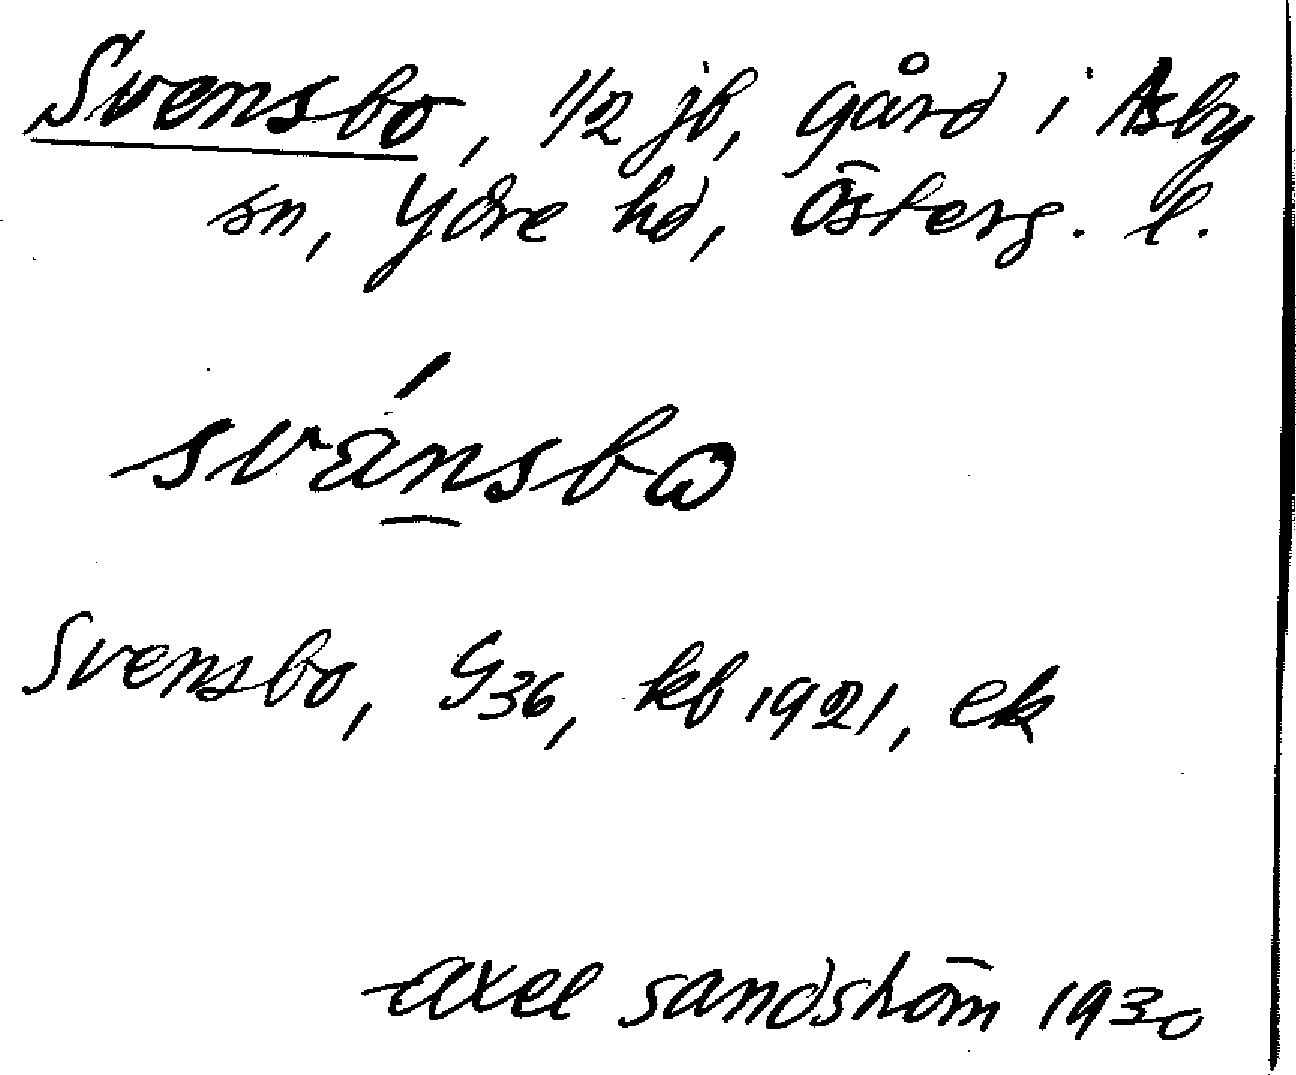 Svensbo, 1/2 jb, gård i Asby
sn, Ydre hd, Österg. l.
svánsbω
Svensbo, G36, kb 1921, ek
axel sandström 1930